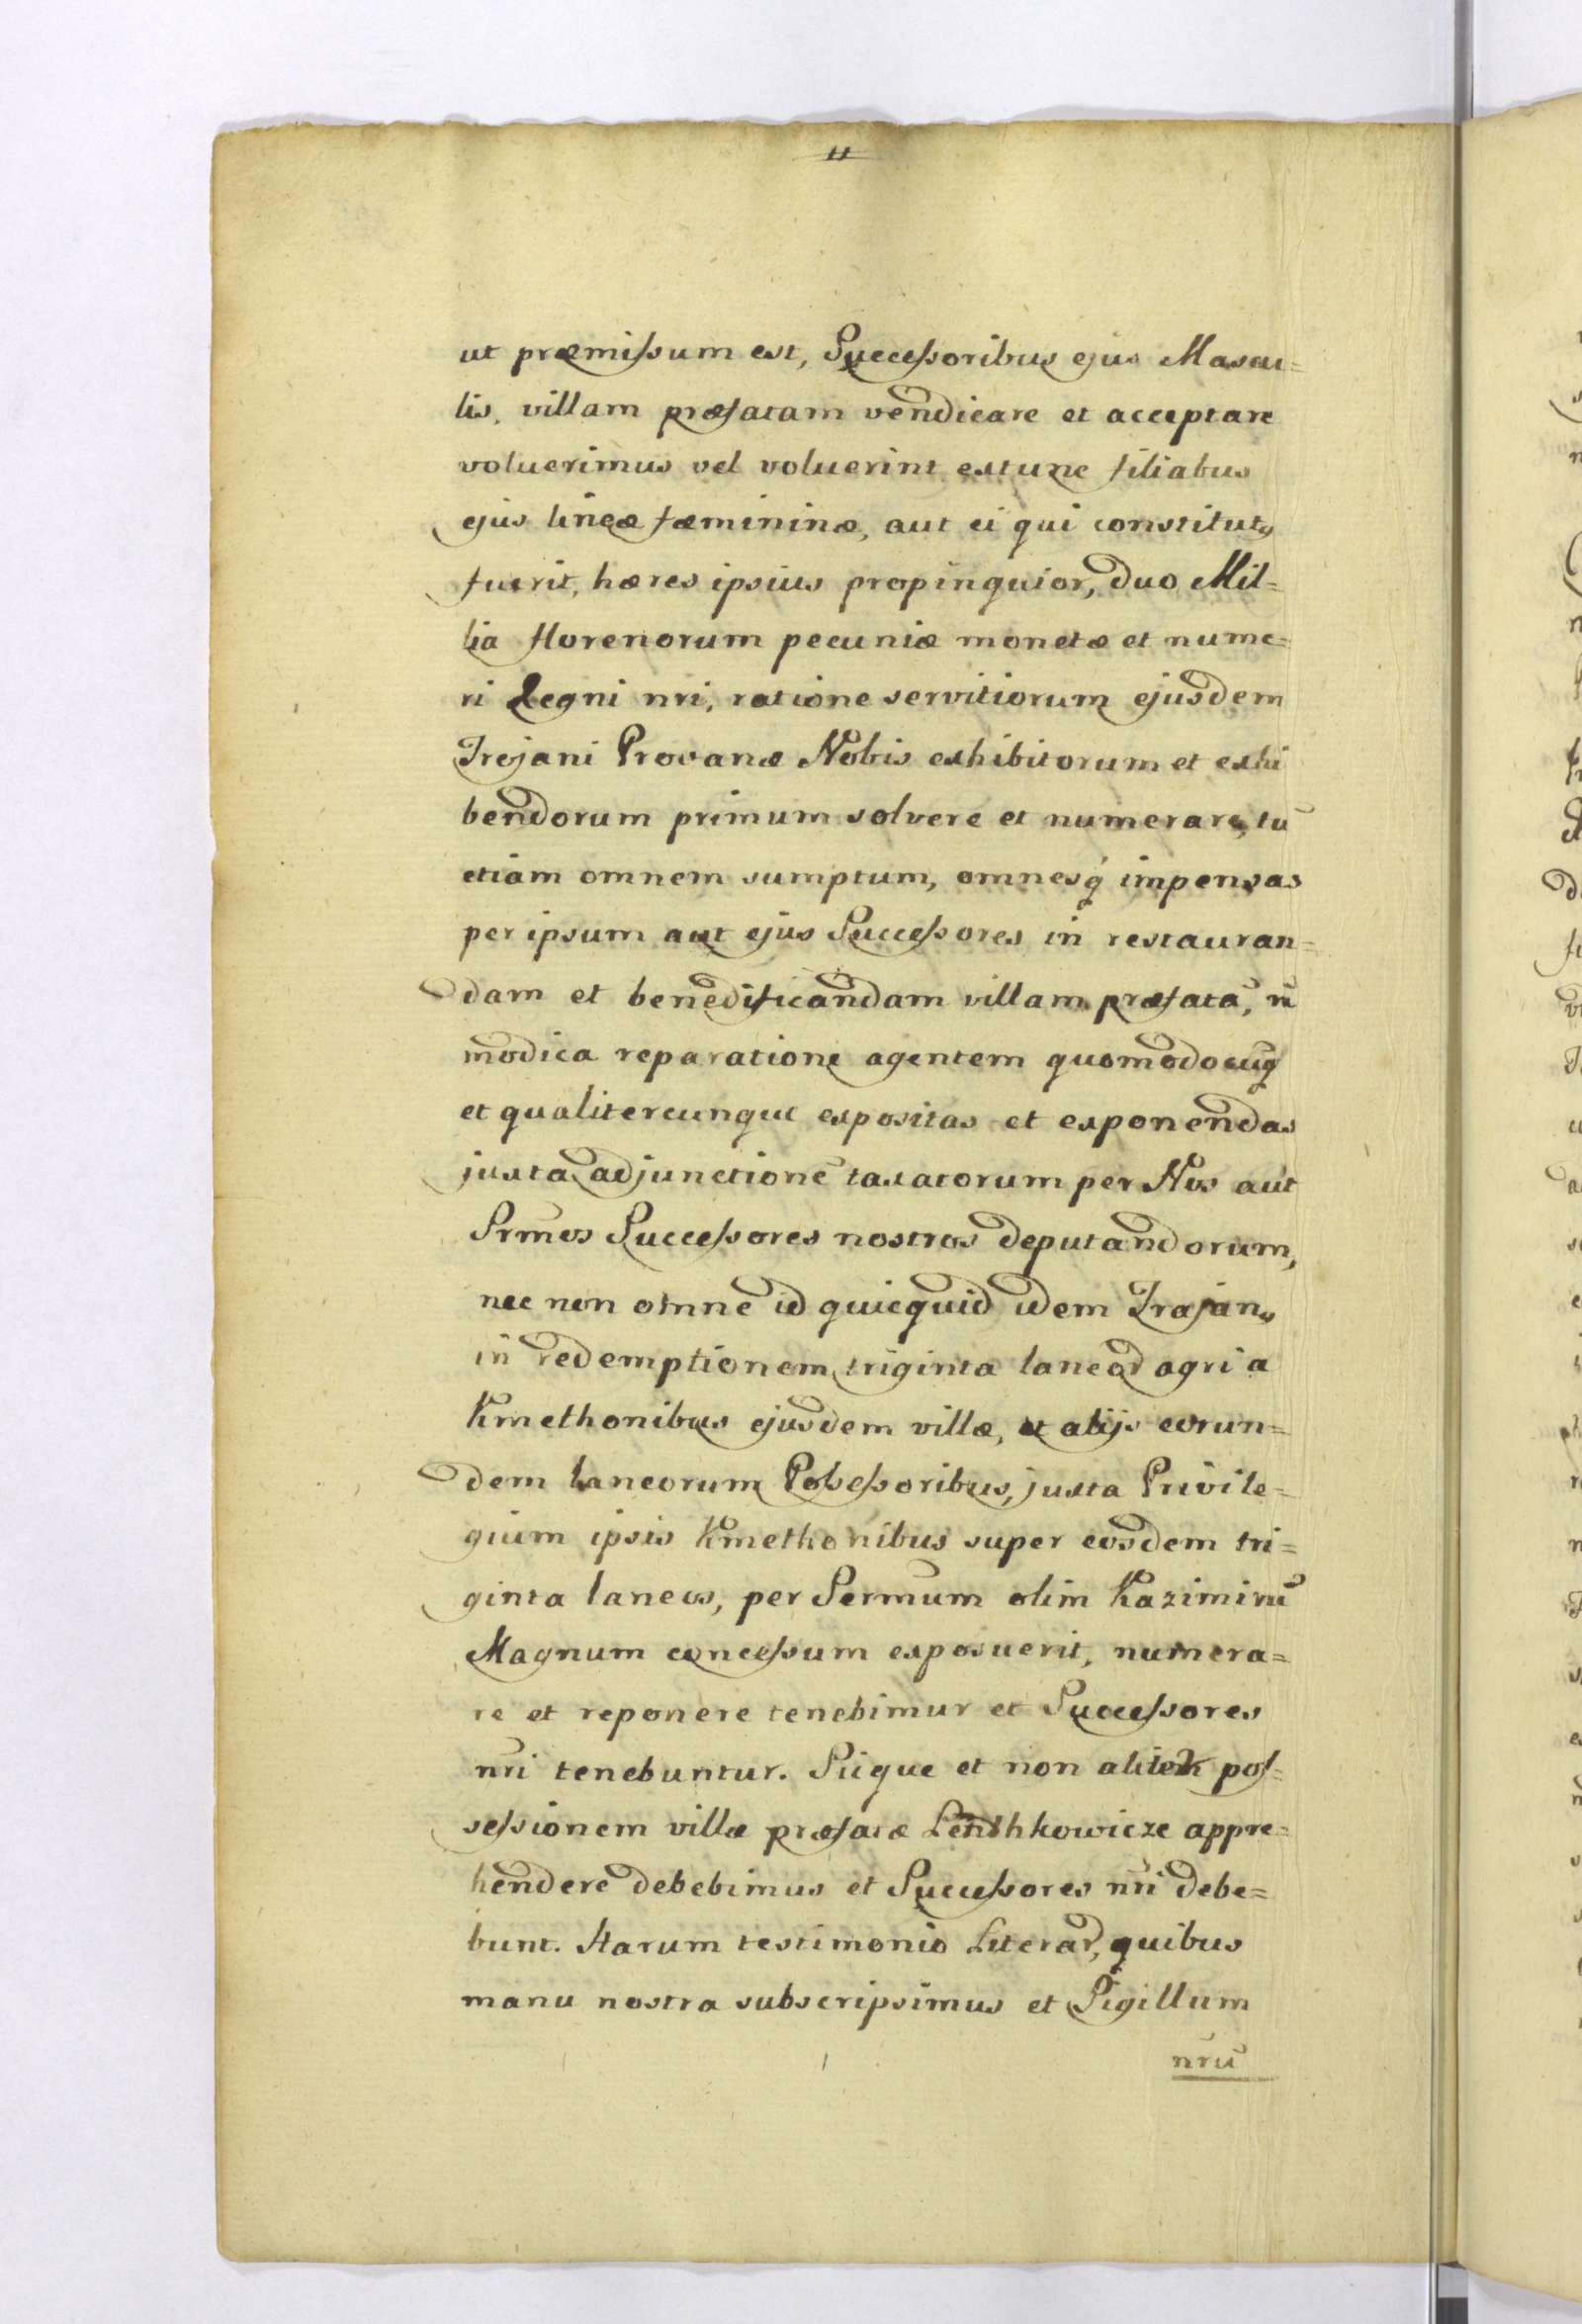 11
ut præmissum est, Successoribus ejus Mascu=
lis, villam præfatam vendicare et acceptare
voluerimus vel voluerint extunc filiabus
ejus lineæ fæmininæ, aut ei qui constitutꝰ
fuerit, hæres ipsius propinquior, duo Mil=
lia florenorum pecuniæ monetæ et nume=
ri Regni nri, ratione servitiorum ejusdem
Trojani Provanæ Nobis exhibitorum et exhi
bendorum primum solvere et numerare, tū
etiam omnem sumptum, omnesq́ impensas
per ipsum aut ejus Successores in restauran=
dam et benedificandam villam præfatā, ñ
modica reparatione agentem quomodocuq̃
et qualitercunque expositas et exponendas
juxta adjunctionē taxatorum per Nos aut
Srmos Successores nostros deputandorum,
nec non omne id quicquid idem Trajanꝰ
in redemptionem triginta laneoꝝ agri a
Kmethonibus ejusdem villæ, et alijs eorun=
dem laneorum Possessoribus, juxta Privile=
gium ipsis Kmethonibus super eosdem tri=
ginta laneos, per Sermum olim Kazimirū
Magnum concessum exposuerit, numera=
re et reponere tenebimur et Successores
nri tenebuntur. Sicque et non aliter pos=
sessionem villæ præfatæ Lendhkowicze appre=
hendere debebimus et Successores nri debe=
bunt. Harum testimonio Literaꝝ, quibus
manu nostra subscripsimus et Sigillum
nrū